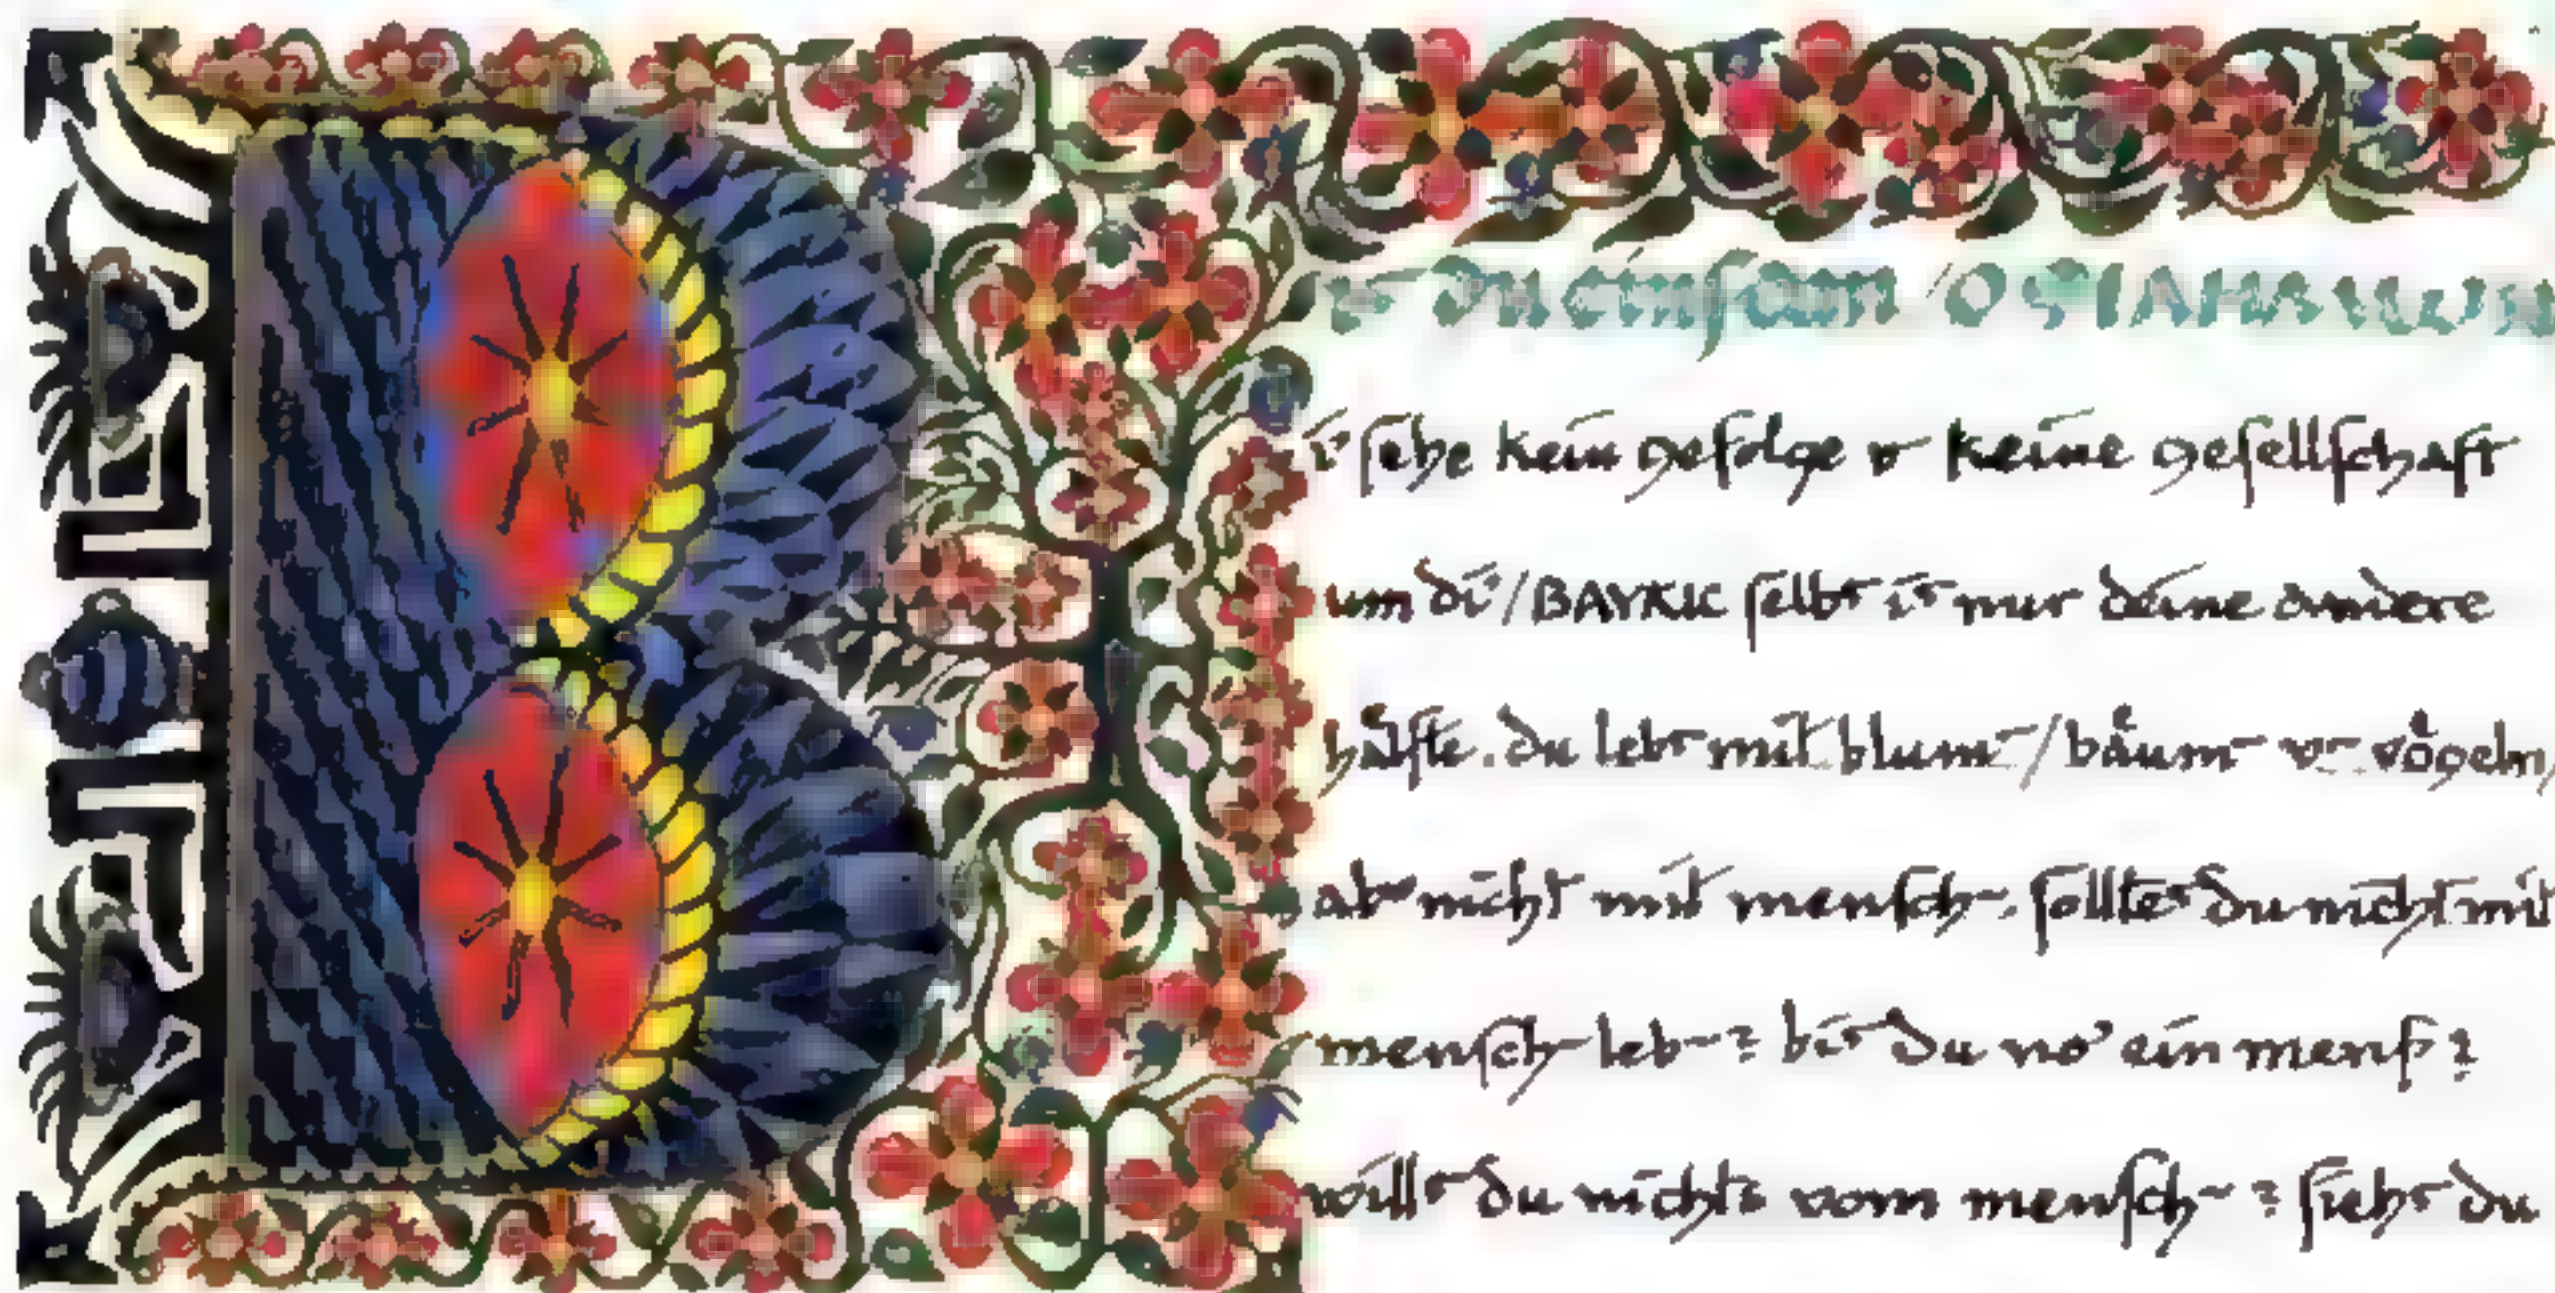 B i‾ du einſam / O ΦΙΛΗΜΩΝ
i’ ſehe kein gefolge v‾ keine geſellſchaft
um di’/ BAYKIC ſelbſ‾ iſ‾ nur deine andere
hälfte. du lebſ‾ mit blum‾ / bäum‾ v‾ vögeln,
ab‾ nicht mit menſch‾. ſollteſ‾ du nicht mit
menſch‾ leb‾? biſ‾ du no’ ein menſ?
willſ‾ du nichts vom menſch‾? ſiehſ‾ du